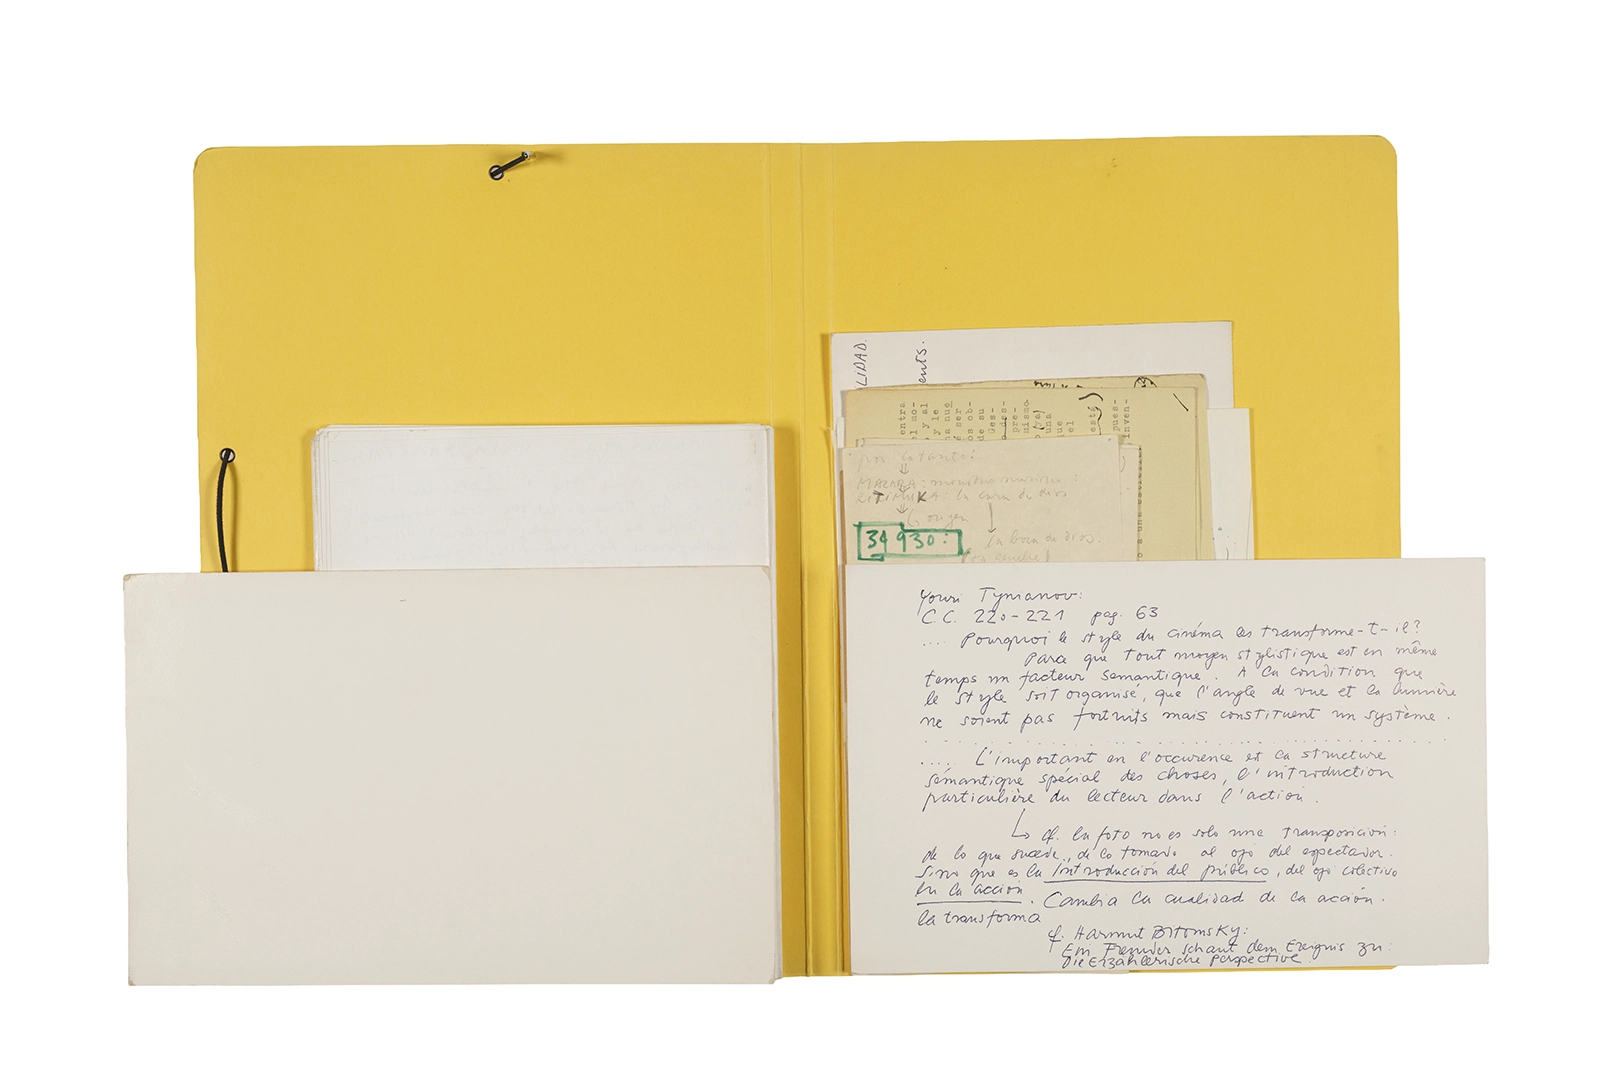 LIDAD.
ents.
entra
el mo-
y al
y le
na nug
e ser
os ob-
de su
Ges-
o des-
pre-
mismo
o (ya)
una
el
esté)
pues-
inven-
o a una
por lo tanto:
MAZAPA: monstruo
RITIMUKA: la cara de dios
origen
la boca de dios.
34 930:
Youri Tynianov:
C.C. 220-221 pag. 63
.... Pourquoi le style du cinéma les transforme-t-il?
Para que tout moyen stylistique est en même
temps un facteur semantique. A la condition que
le style soit organisé, que l'angle de vue et la lumière
ne soient pas fortuits mais constituent un système.
.... L'important en l'occurence est la structure
sémantique spécial des choses, l'introduction
particulière du lecteur dans l'action.
cf. la foto no es solo une transposicion:
de lo que sucede, de lo tomado al ojo del espectador.
Sino que es la introducción del público, del ojo colectivo
en la acción. Cambia la cualidad de la acción.
la transforma
cf. Harmut Bitomsky:
Ein Fremder schaut dem Ereignis zu:
Die Erzählerische Perspective.